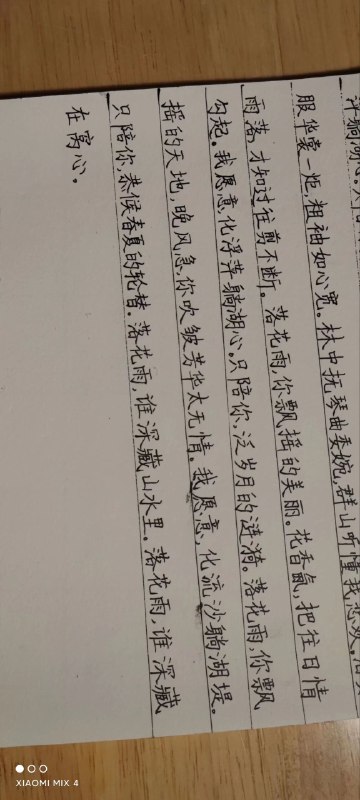 躺湖心。
服华裳一炬,粗袖如心宽。林中抚琴曲委婉,群山听懂我悲欢。
雨落,才知过往剪不断。落花雨,你飘摇的美丽。花香氤,把往日情
勾起。我愿意,化浮萍躺湖心。只陪你,泛岁月的涟漪。落花雨,你飘
摇的天地,晚风急,你吹皱芳华太无情。我愿意,化流沙躺湖堤。
只陪你,恭候春夏的轮替。落花雨,谁深藏山水里。落花雨,谁深藏
在离心。
XIAOMI MIX 4